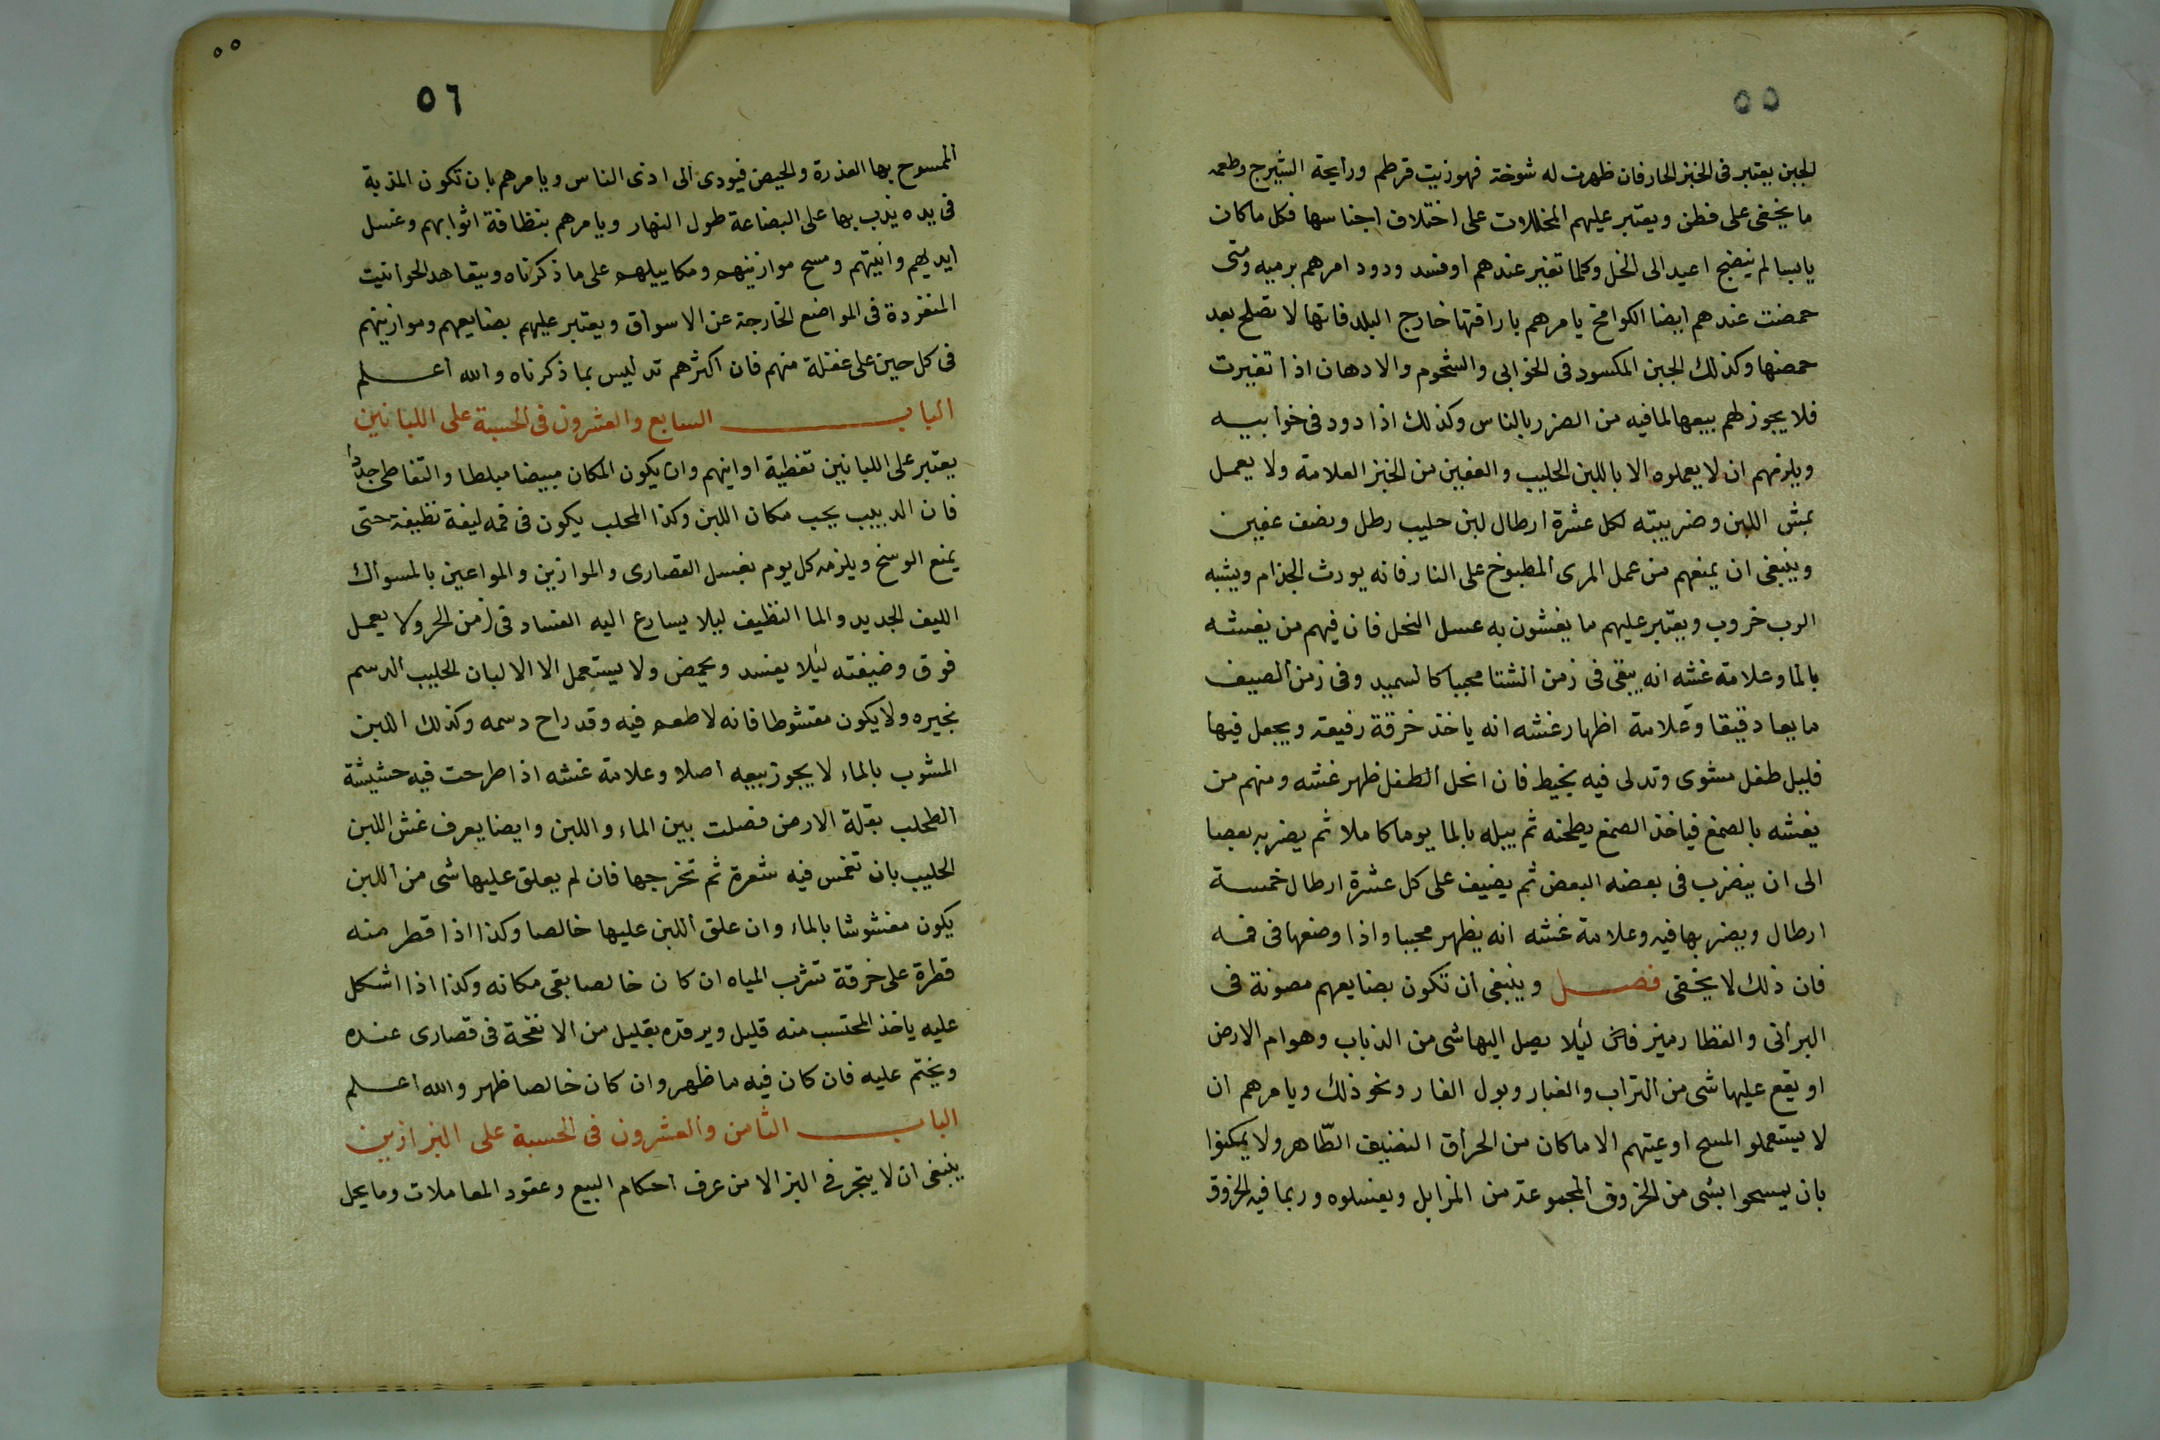 ٥٥
الجبن يعتبر فى الخبز الحار فان ظهرت له شوخة فهو زيت قرطم ورايحة الشيرج وطعمه
ما يخفى على فطن ويعتبر عليهم المخللات على اختلاف اجناسها فكل ما كان
يابسا لم ينضج اعيد الى الخل وكلما تغير عندهم او فسد ودود امرهم برميه ومتى
حمضت عندهم ايضا الكوامخ يامرهم باراقتها خارج البلد فانها لا تصلح بعد
حمضها وكذلك الجبن المكسود فى الخوابى والشحوم والادهان اذا تغيرت
فلا يجوز لهم بيعها لما فيه من الضرر بالناس وكذلك اذا دود فى خوابيه
ويلزمهم ان لا يعملوه الا باللبن الحليب والعفين من الخبز العلامة ولا يعمل
بمش اللبن وضريبته لكل عشرة ارطال لبن حليب رطل ونصف عفين
وينبغى ان يمنعهم من عمل المرى المطبوخ على النار فانه يورث الجذام ويشبه
الرب خروب ويعتبر عليهم ما يغشون به عسل النحل فان فيهم من يغشه
بالما وعلامة غشه انه يبقى فى زمن الشتا محببا كالسميد وفى زمن الصيف
مايعا دقيقا وعلامة اظهار غشه انه ياخذ خرقة رفيعة ويجعل فيها
قليل طفل مشوى وتدلى فيه بخيط فان انحل الطفل ظهر غشه ومنهم من
يغشه بالصمغ فياخذ الصمغ يطحنه ثم يبله بالما يوما كاملا ثم يضربه بعصا
الى ان ينضرب فى بعضه البعض ثم يضيف على كل عشرة ارطال خمسة
ارطال ويضربها فيه وعلامة غشه انه يظهر محببا واذا وضعها فى فمه
فان ذلك لا يخفى فصل وينبغى ان تكون بضايعهم مصونة فى
البرانى والقطارميز لئلا يصل اليها شى من الذباب وهوام الارض
او يقع عليها شى من التراب والغبار وبول الفار ونحو ذلك ويامرهم ان
لا يستعملو المسح اوعيتهم الا ما كان من الحراق النضيف الطاهر ولا يمكنوا
بان يمسحوا بشى من الخروق المجموعة من المزابل ويغسلوه وربما فيه الخروق
٥٥
٥٦
الممسوح بها العذرة والحيض فيودى الى اذى الناس ويامرهم بان تكون المذبة
فى يده يذب بها على البضاعة طول النهار ويامرهم بنظافة اثوابهم وغسل
ايديهم وانيتهم ومسح موازينهم ومكاييلهم على ما ذكرناه ويتعاهد الحوانيت
المنفردة فى المواضع الخارجة عن الاسواق ويعتبر عليهم بضايعهم وموازينهم
فى كل حين على غفلة منهم فان اكثرهم تدليس بما ذكرناه والله اعلم
الباب السابع والعشرون فى الحسبة على اللبانين
يعتبر على اللبانين تغطية اوانيهم وان يكون المكان مبيضا مبلطا والتغاطى جددا
فان الدبيب يحب مكان اللبن وكذا المحلب يكون فى فمه ليفة نظيفة حتى
يمنع الوسخ ويلزمه كل يوم بغسل القصارى والموازين والمواعين بالمسواك
الليف الجديد والما النظيف ليلا يسارع اليه الفساد فى زمن الحر ولا يعمل
فوق وضيفته لئلا يفسد ويحمض ولا يستعمل الا الالبان الحليب الدسم
بخيره ولا يكون مقشوطا فانه لا طعم فيه وقد راح دسمه وكذلك اللبن
المشوب بالماء لا يجوز بيعه اصلا وعلامة غشه اذا طرحت فيه حشيشة
الطحلب بقلة الارض فصلت بين الماء واللبن وايضا يعرف غش اللبن
الحليب بان تغمس فيه شعرة ثم تخرجها فان لم يعلق عليها شى من اللبن
يكون مغشوشا بالماء وان علق اللبن عليها خالصا وكذا اذا قطر منه
قطرة على خرقة تشرب المياه ان كان خالصا بقى مكانه وكذا اذا اشكل
عليه ياخذ المحتسب منه قليل ويرقده بقليل من الانفحة فى قصارى عنده
ويختم عليه فان كان فيه ما ظهر وان كان خالصا ظهر والله اعلم
الباب الثامن والعشرون فى الحسبة على البزازين
ينبغى ان لا يتجر فى البز الا من عرف احكام البيع وعقود المعاملات وما يحل